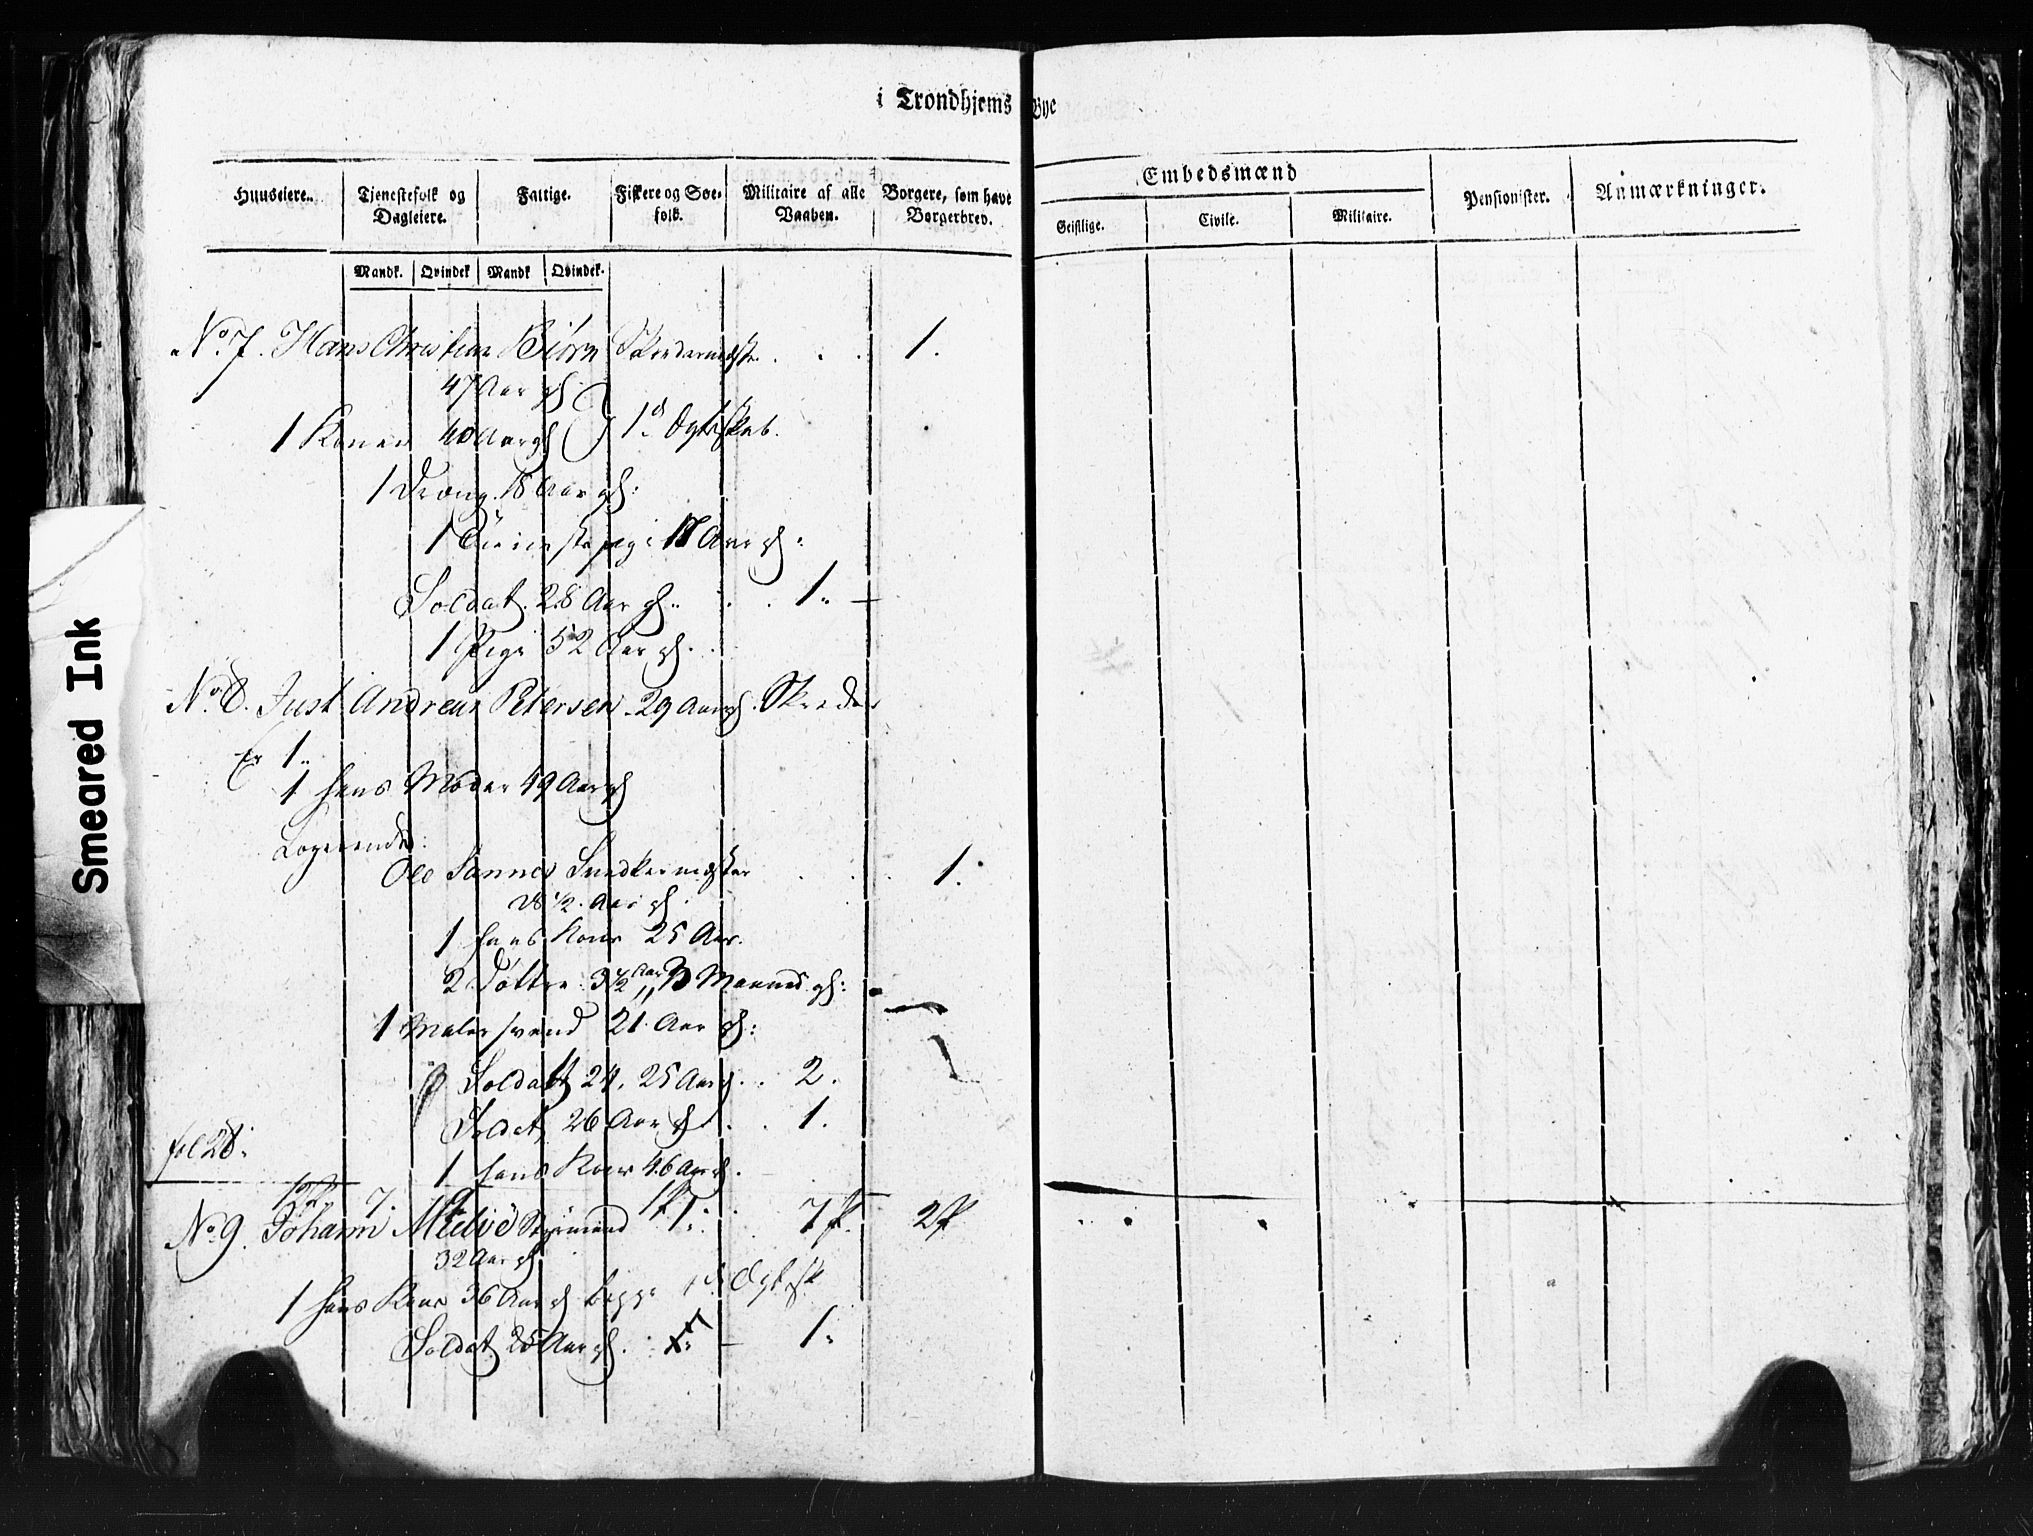 i Trondhjems Bye
Huuseiere. Tjenestefolk og Dagleiere. Fattige. Fiskere og Søe-folk. Militaire af alle Vaaben. Borgere, som have Borgerbrev. Embedsmænd Pensionister. Anmærkninger.
Geistlige. Civile. Militaire.
Mandk. Qvindek Mandk Qvindek.
No. 7. Hans Christian Biörn Skredermester . . . 1.
47 Aar gl.
1 Konen 40 Aar gl 1ste Ægteskab.
1 Dreng 18 Aar gl:
1 Tienestepige 18 Aar gl:
Soldat. 28 Aar gl. . . 1. —
1 Pige 52 Aar gl.
No. 8. Just Andreas Petersen 29 Aar gl. Skreder
1.
1 hans Moder 49 Aar gl
Logerende:
Ole Sannes Snedkermester . . . 1.
28 1/2 Aar gl.
1 hans Kone 25 Aar.
2 Döttre 3 1/2 Aar, 3 Maaned gl:
1 Maler svend 21 Aar gl:
Soldatr 24, 25 Aar gl. . 2.
Soldat 26 Aar gl . . 1.
fol 28.
1 hans Kone 46 Aar gl.
No. 9. Johann Styrmand 1. 7 2
32 Aar gl
1 hans Kone 36 Aar gl begge Ægtesk
Soldat 25 Aar gl. — 1.
Smeared Ink